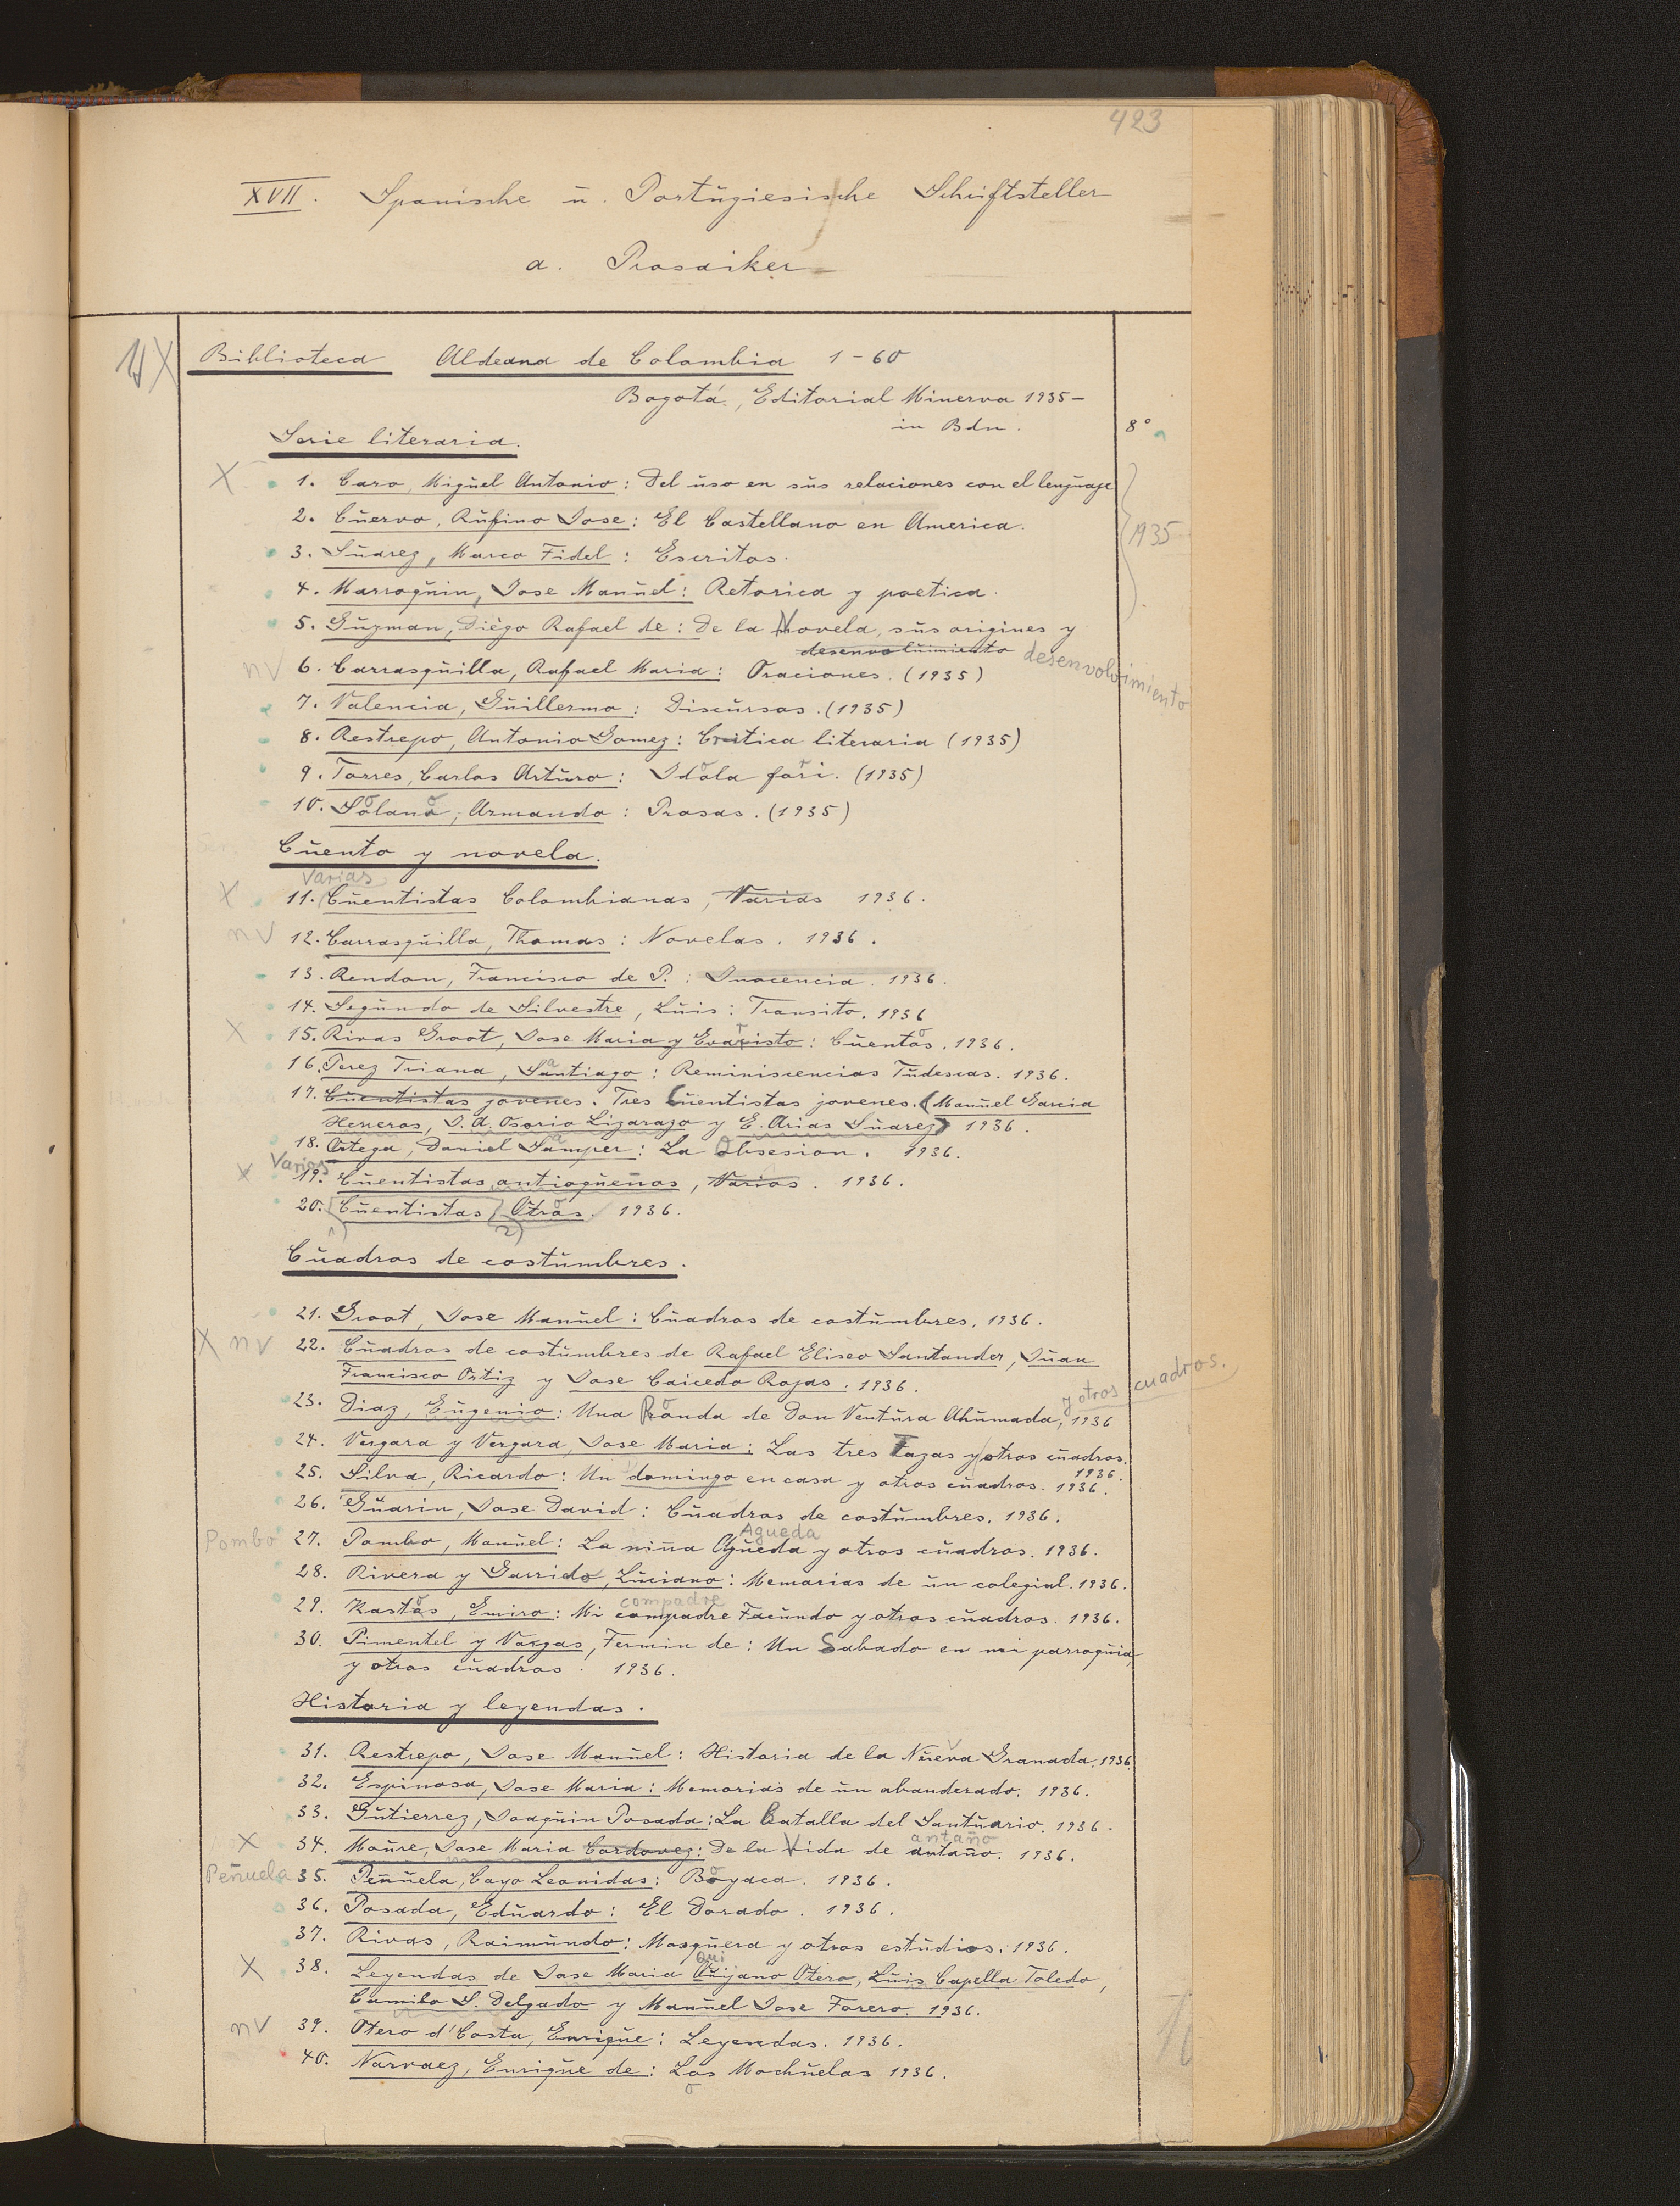 423
XVII. Spanische ŭ. Portŭgiesische Schriftsteller
a. Prosaiker
Biblioteca Aldeana de Colombia 1-60
Bogotá, Editorial Minerva 1935-
in Bdn. 8°
Serie literaria.
X 1. Caro, Migŭel Antonio: Del ŭso en sŭs relaciones con el lengŭaje
2. Cŭervo, Rŭfino Jose: El Castellano en America.
1935
3. Sŭarez, Marco Fidel: Escritos.
4. Marroqŭin, Jose Manŭel: Retorica y poetica.
5. Gŭzman, Diego Rafael de: De la Novela, sŭs origines y
desenvolŭimiento desenvolvimiento
nv 6. Carrasqŭilla, Rafael Maria: Oraciones. (1935)
7. Valencia, Gŭillermo: Discŭrsos. (1935)
8. Restrepo, Antonio Gomez: Critica literaria (1935)
9. Torres, Carlos Artŭro: Idola fori. (1935)
10. Solano, Armando: Prosas. (1935)
Cŭento y novela.
Varias
X 11. Cŭentistas Colombianas, Varias 1936.
nv 12. Carrasqŭilla, Thomas: Novelas. 1936.
13. Rendon, Francisco de P.: Inocencia. 1936.
14. Segŭndo de Silvestre, Lŭis: Transito. 1936
X 15. Rivas Groot, Jose Maria y Evaristo: Cŭentos. 1936.
16. Perez Triana, Santiago: Reminiscencias Tŭdescas. 1936.
17. Cŭentistas jovenes. Tres Cŭentistas jovenes. (Manŭel Garcia
Herreros, J. A. Osorio Lizarazo y E. Arias Sŭarez) 1936.
18. Ortega, Daniel Samper: La Obsesion. 1936.
X Varios 19. Cŭentistas antioqŭeños, Varios. 1936.
20. Cŭentistas, Otros. 1936.
1) 2)
Cŭadros de costŭmbres.
21. Groot, Jose Manŭel: Cŭadros de costŭmbres. 1936.
X nv 22. Cŭadros de costŭmbres de Rafael Eliseo Santander, Jŭan
Francisco Ortiz y Jose Caicedo Rojas. 1936.
y otros cuadros.
23. Diaz, Eŭgenio: Una Ronda de Don Ventŭra Ahŭmada, 1936
24. Vergara y Vergara, Jose Maria: Las tres Tazas y otros cŭadros.
1936.
25. Silva, Ricardo: Un domingo en casa y otros cŭadros. 1936.
26. Gŭarin, Jose David: Cŭadros de costŭmbres. 1936.
Agueda
Pombo 27. Pombo, Manŭel: La niña Agŭeda y otros cŭadros. 1936.
28. Rivera y Garrido, Lŭciano: Memorias de ŭn colegial. 1936.
compadre
29. Kastos, Emiro: Mi compadre Facŭndo y otros cŭadros. 1936.
30. Pimentel y Vargas, Fermin de: Un Sabado en mi parroqŭia,
y otros cŭadros. 1936.
Historia y leyendas.
31. Restrepo, Jose Manŭel: Historia de la Nŭeva Granada. 1936.
32. Espinosa, Jose Maria: Memorias de ŭn abanderado. 1936.
33. Gŭtierrez, Joaqŭin Posada: La Batalla del Santŭario. 1936.
antaño
X 34. Moŭre, Jose Maria Cordovez: De la Vida de antaño. 1936.
Peñuela 35. Peñŭela, Cayo Leonidas: Boyaca. 1936.
36. Posada, Edŭardo: El Dorado. 1936.
37. Rivas, Raimŭndo: Mosqŭera y otros estŭdios. 1936.
Qui
X 38. Leyendas de Jose Maria Qŭijano Otero, Lŭis Capella Toledo,
Camilo S. Delgado y Manŭel Jose Forero. 1936.
nv 39. Otero d'Costa, Enriqŭe: Leyendas. 1936.
40. Narvaez, Enriqŭe de: Los Mochŭelos 1936.